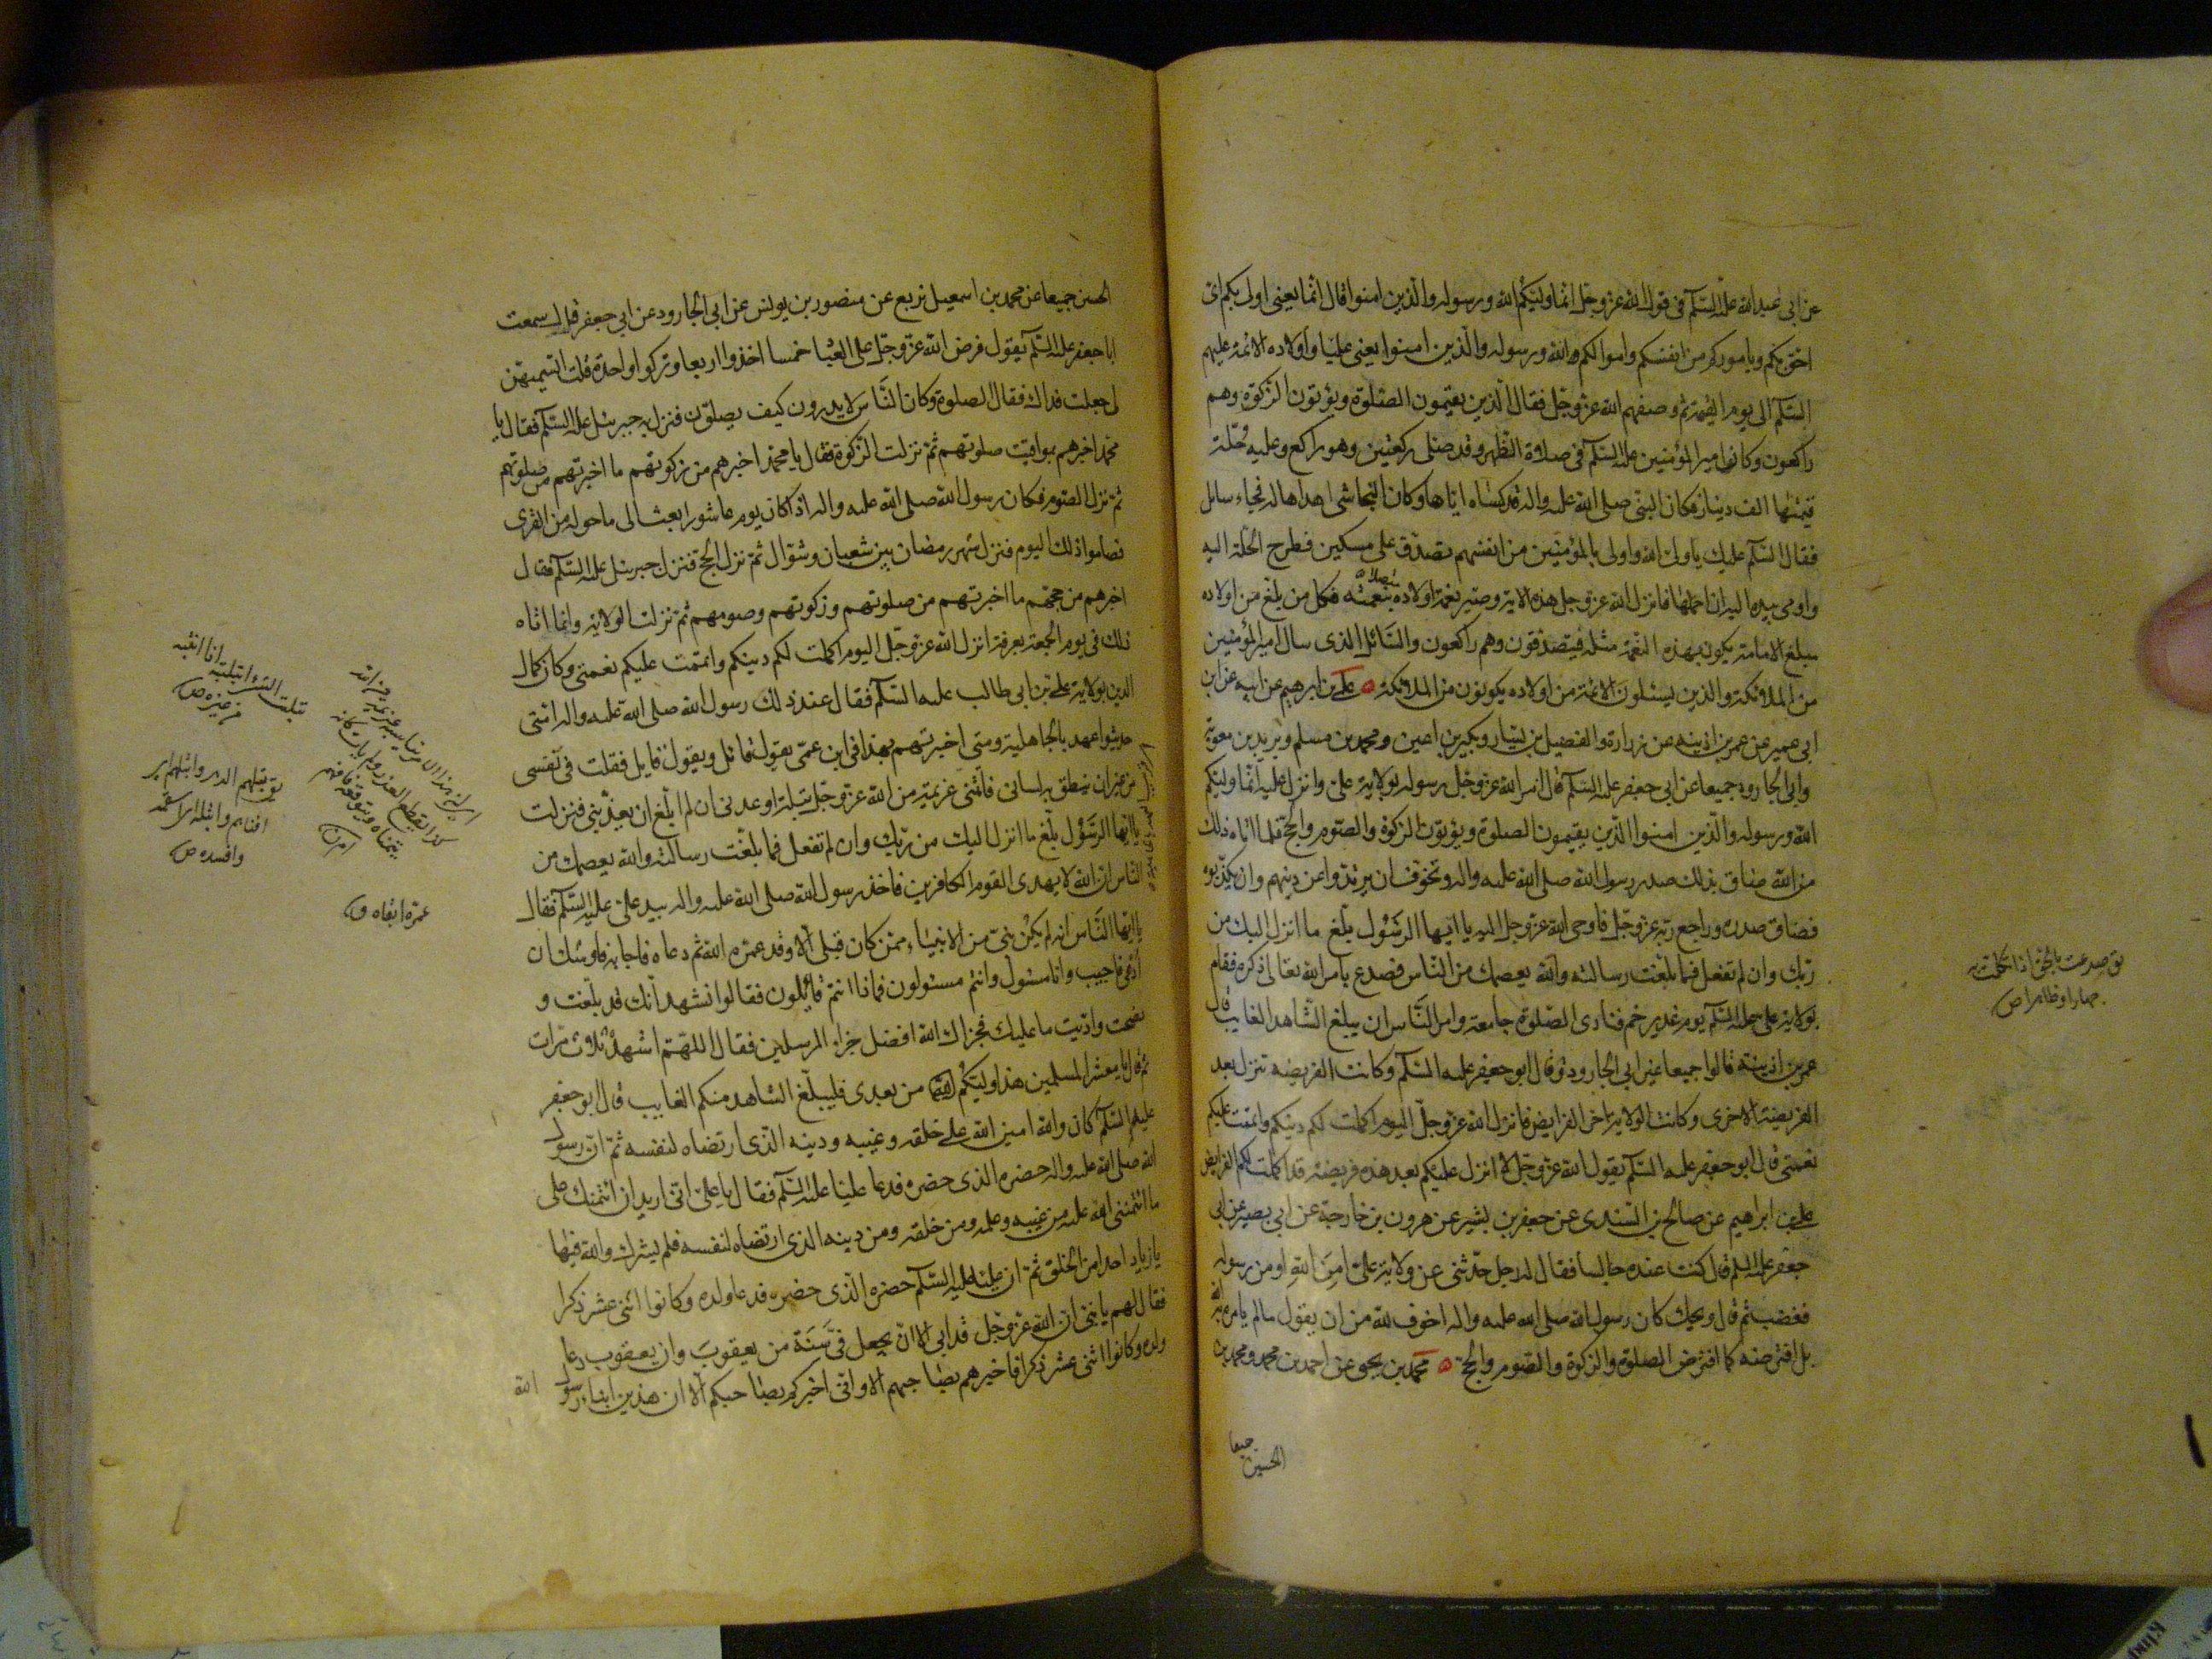 عن ابى عبد الله عليه السلام فى قول الله عز وجل انما وليكم الله ورسوله والذين امنوا قال انما يعنى اولى بكم اى
احق بكم وباموركم من انفسكم واموالكم الله ورسوله والذين امنوا يعنى عليا واولاده الائمة عليهم
السلم الى يوم القيمة ثم وصفهم الله عز وجل فقال الذين يقيمون الصلوة ويؤتون الزكوة وهم
راكعون وكان امير المؤمنين عليه السلم فى صلاة الظهر وقد صلى ركعتين وهو راكع وعليه حلة
قيمتها الف دينار وكان النبى صلى الله عليه واله كساه اياها وكان النجاشى اهداها له فجاء سائل
فقال السلم عليك يا ولى الله واولى بالمؤمنين من انفسهم تصدق على مسكين فطرح الحلة اليه
واومى بيده اليه ان احملها فانزل الله عز وجل هذه الاية وصير نعمة اولاده بنعمته فكل من بلغ من اولاده
مبلغ الامامة يكون بهذه النعمة مثله فيتصدقون وهم راكعون والسائل الذى سال امير المؤمنين
من الملائكة والذين يسئلون الائمة من اولاده يكونون من الملائكة ه على بن ابرهيم عن ابيه عن ابن
ابى عمير عن عمر بن اذينه عن زرارة والفضيل بن يسار وبكير بن اعين ومحمد بن مسلم وبريد بن معوية
وابى الجارود جميعا عن ابى جعفر عليه السلم قال امر الله عز وجل رسوله بولاية على وانزل عليه انما وليكم
الله ورسوله والذين امنوا الذين يقيمون الصلوة ويؤتون الزكوة والصوم والحج فلما اتاه ذلك
من الله ضاق بذلك صدر رسول الله صلى الله عليه واله وتخوف ان يرتدوا عن دينهم وان يكذبوه
فضاق صدره وراجع ربه عز وجل فاوحى الله عز وجل اليه يا ايها الرسول بلغ ما انزل اليك من
ربك وان لم تفعل فما بلغت رسالته والله يعصمك من الناس فصدع بامر الله تعالى ذكره فقام
بولاية على عليه السلم يوم غدير خم فنادى الصلوة جامعة وامر الناس ان يبلغ الشاهد الغايب قال
عمر بن اذينة قالوا جميعا غير ابى الجارود وقال ابو جعفر عليه السلم وكانت الفريضه تنزل بعد
الفريضة الاخرى وكانت الولاية اخر الفرايض فانزل الله عز وجل اليوم اكملت لكم دينكم واتممت عليكم
نعمتى قال ابو جعفر عليه السلم يقول الله عز وجل لا انزل عليكم بعد هذه فريضة قد اكملت لكم الفرايض
على بن ابراهيم عن صالح بن السندى عن جعفر بن بشير عن هرون بن خارجة عن ابى بصير عن ابى
جعفر عليه السلم قال كنت عنده جالسا فقال له رجل حدثنى عن ولاية على امن الله او من رسوله
فغضب ثم قال ويحك كان رسول الله صلى الله عليه واله اخوف لله من ان يقول ما لم يامره به الله
بل افترضه كما افترض الصلوة والزكوة والصوم والحج ه محمد بن يحيى عن احمد بن محمد ومحمد بن
الحسين جميعا
يق صدعت بالحق اذا تكلمت به
جهارا وظاهرا ص
الحسين جميعا عن محمد بن اسمعيل بن بزيع عن منصور بن يونس عن ابى الجارود عن ابى جعفر قال سمعت
ابا جعفر عليه السلم يقول فرض الله عز وجل على العباد خمسا اخذوا اربعا وتركوا واحدة قلت اتسميهن
لى جعلت فداك فقال الصلوة وكان الناس لا يدرون كيف يصلون فنزل به جبرئيل عليه السلم فقال يا
محمد اخبرهم بمواقيت صلوتهم ثم نزلت الزكوة فقال يا محمد اخبرهم من زكوتهم ما اخبرتهم من صلوتهم
ثم نزل الصوم فكان رسول الله صلى الله عليه واله اذا كان يوم عاشورا بعث الى ما حوله من القرى
فصاموا ذلك اليوم فنزل شهر رمضان بين شعبان وشوال ثم نزل الحج فنزل جبرئيل عليه السلم فقال
اخبرهم من حجهم ما اخبرتهم من صلوتهم وزكوتهم وصومهم ثم نزلت الولاية وانما اتاه
ذلك فى يوم الجمعة بعرفة انزل الله عز وجل اليوم اكملت لكم دينكم واتممت عليكم نعمتى وكان كمال
الدين بولاية على بن ابى طالب عليه السلم فقال عند ذلك رسول الله صلى الله عليه واله امتى
حديثوا عهد بالجاهلية ومتى اخبرتهم بهذا فى ابن عمى يقول قائل ويقول قايل فقلت فى نفسى
من غير ان ينطق به لسانى فاتتنى عزيمة من الله عز وجل بتلة اوعدنى ان لم ابلغ ان يعذبنى فنزلت
يا ايها الرسول بلغ ما انزل اليك من ربك وان لم تفعل فما بلغت رسالته والله يعصمك من
الناس ان الله لا يهدى القوم الكافرين فاخذ رسول الله صلى الله عليه واله بيد على عليه السلم فقال
يا ايها الناس انه لم يكن نبى من الانبياء ممن كان قبلى الا وقد عمره الله ثم دعاه فاجابه فاوشك ان
ادعى فاجيب وانا مسئول وانتم مسئولون فماذا انتم قائلون فقالوا نشهد انك قد بلغت و
نصحت واديت ما عليك فجزاك الله افضل جزاء المرسلين فقال اللهم اشهد ثلاث مرات
ثم قال يا معشر المسلمين هذا وليكم من بعدى فليبلغ الشاهد منكم الغايب قال ابو جعفر
عليه السلم كان والله امين الله على خلقه وغيبه ودينه الذى ارتضاه لنفسه ثم ان رسول
الله صلى الله عليه واله حضره الذى حضره فدعا عليا عليه السلم فقال يا على انى اريد ان ائتمنك على
ما ائتمننى الله عليه من غيبه وعلمه ومن خلقه ومن دينه الذى ارتضاه لنفسه فلم يشرك والله فيها
يا زياد احدا من الخلق ثم ان عليا عليه السلم حضره الذى حضره فدعا ولده وكانوا اثنى عشر ذكرا
فقال لهم يا بنى ان الله عز وجل قد ابى الا ان يجعل فى سنة من يعقوب وان يعقوب دعا
ولده وكانوا اثنى عشر ذكرا فاخبرهم بصاحبهم الا وانى اخبركم بصاحبكم الا ان هذين ابنا رسول الله
بتلت الشئ ابتله انا ابنته
من غيره ص
يق بتلهم الدهر وابتلهم اى
افناهم
وافسده ص
عمره ابقاه ق